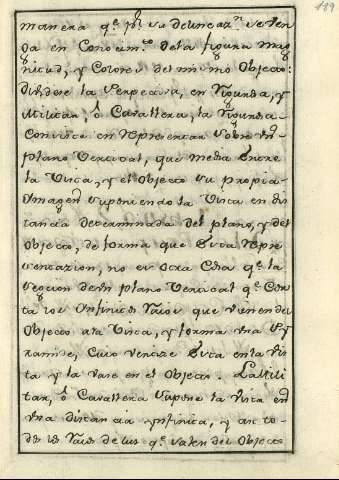 189
manera qe. pr. su delineazn. se ven
da en Conocimto. dela figura mag
nitud, y Colores del mismo Objecto:
dividese la Perspectiva, en Rigurosa, y
Militar, ó Cavallera; la Rigurosa
Consiste en representar sobre un
plano Vertical, que media entre
la Vista, y el Objecto su propia
Imagen suponiendo la Vista en dis
tancia determinada del plano, y del
Objecto, de forma que esta repre
sentazion, no es otra Cosa qe. la
seccion de un plano Vertical qe. Cor
ta los Infinitos Raios que vienen del
Objecto ala Vista, y forma una Py
ramide, Cuio vertize esta en la vis
ta y la vase en el Objecto. La Mili
tar, ó Cavallera supone la vista en
una distancia ynfinita, y an to
dos los Raios de luz qe. salen del Objecto